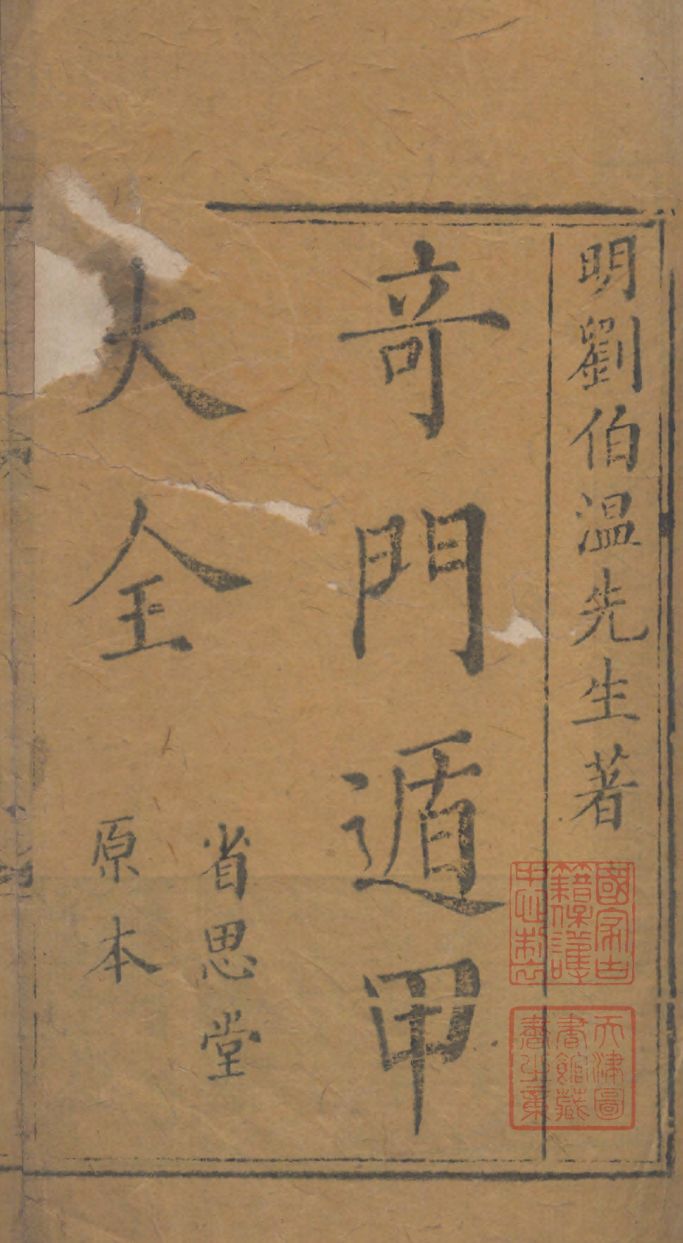 明劉伯温先生著
竒門遁甲
大全
省思堂
原本
國家古
籍保護
天津圖
書館藏
書之章